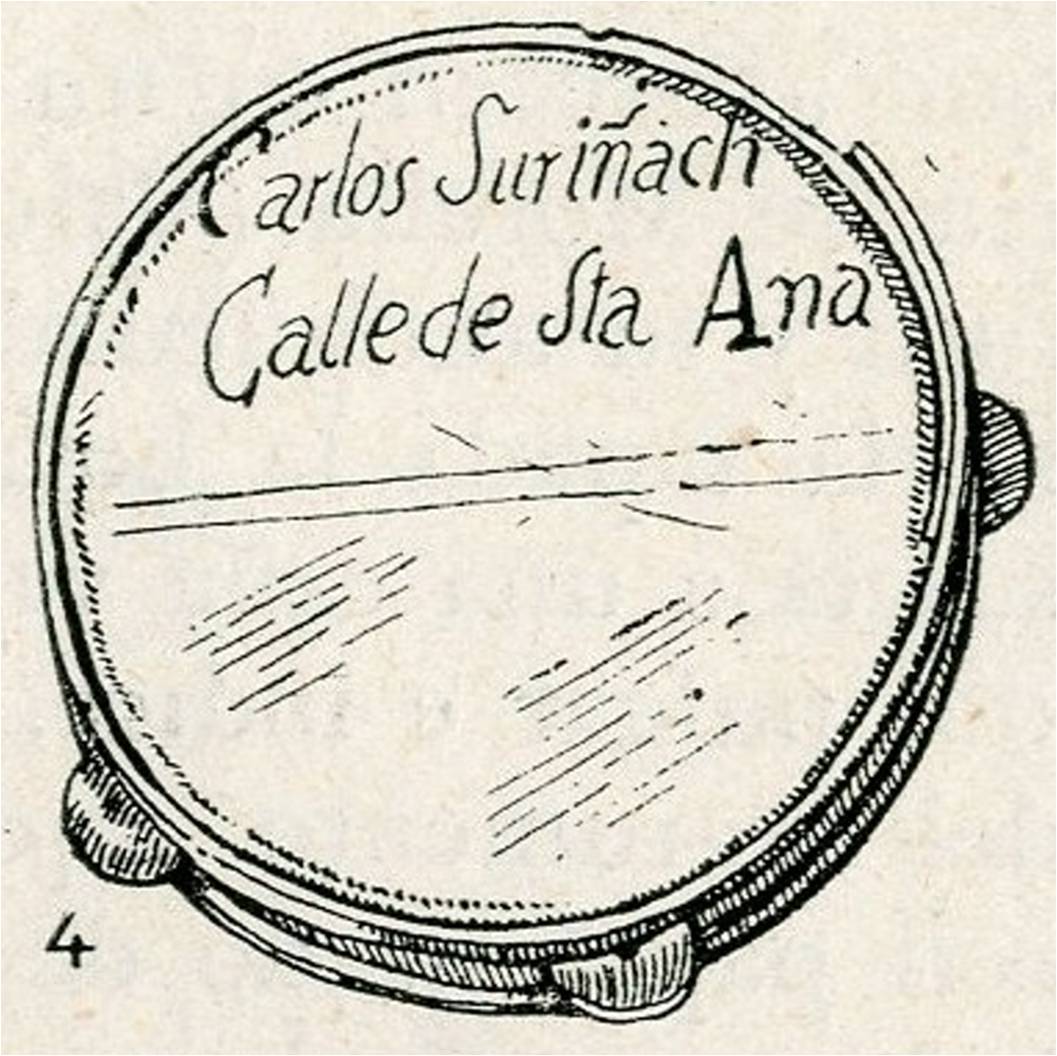 Carlos Suriñach
Calle de Sta Ana
4